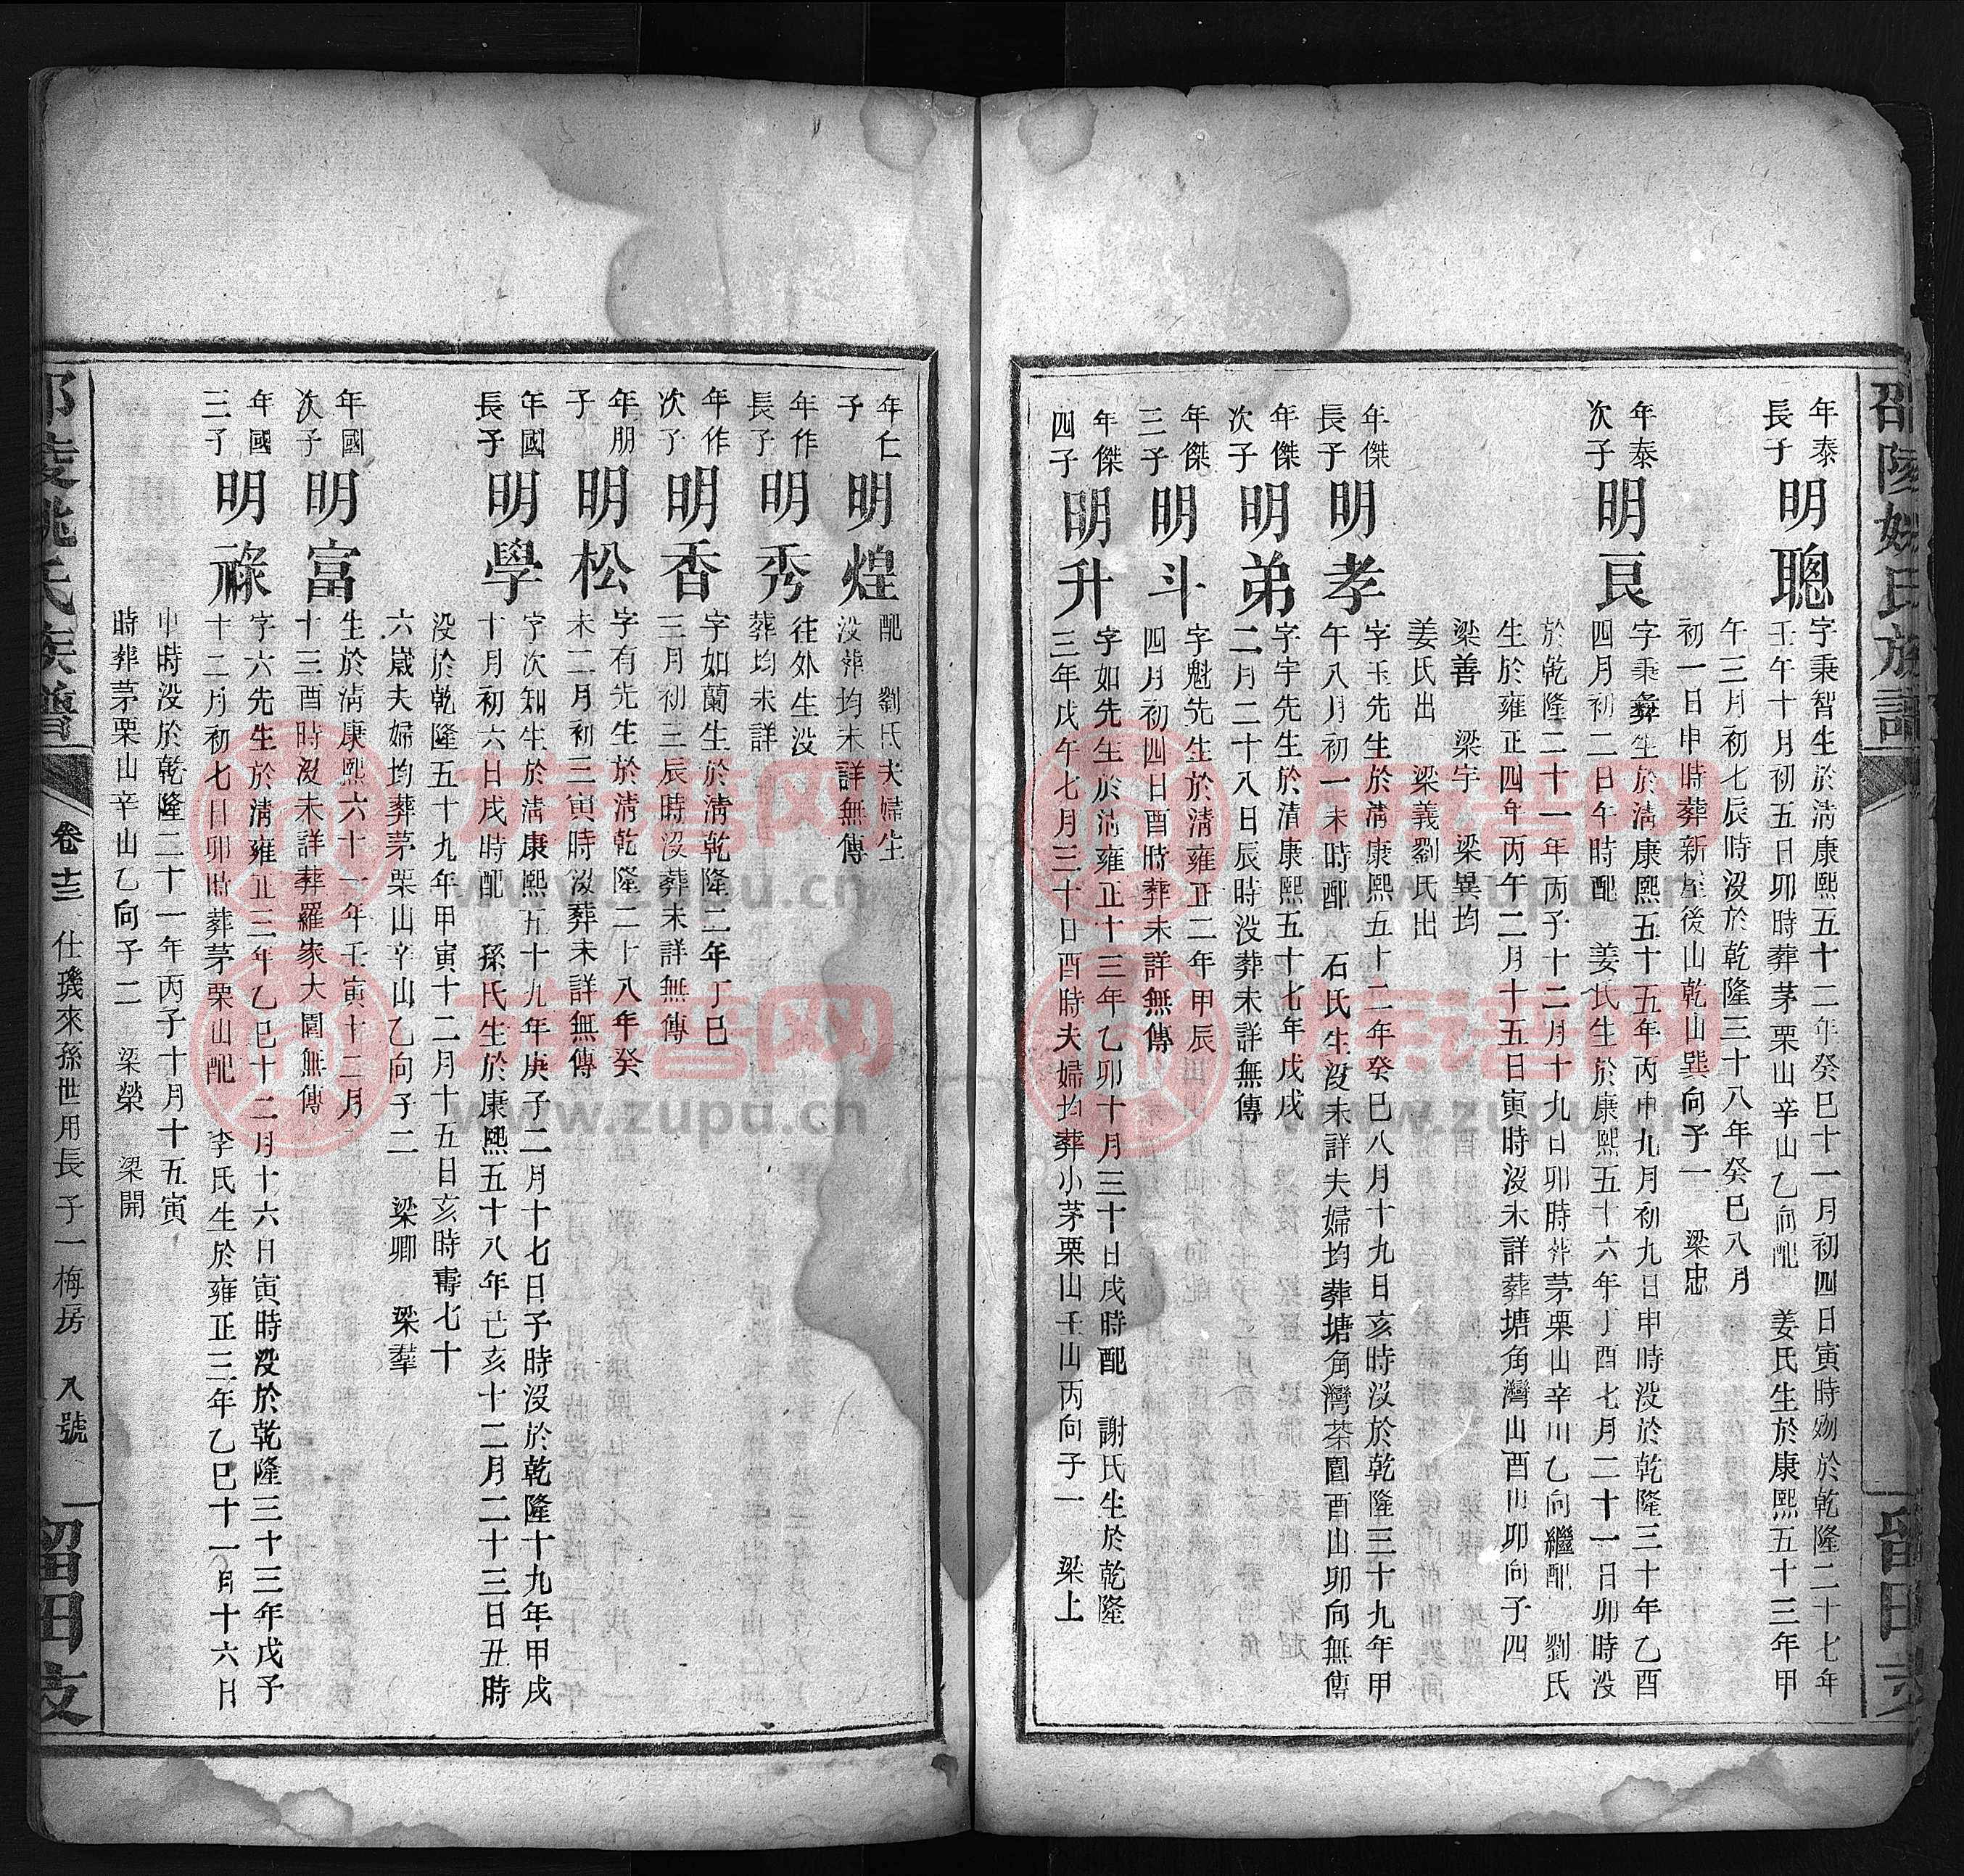 邵陵姚氏族譜
留田支
年泰
長子
明聰
字秉智生於清康熙五十二年癸巳十一月初四日寅時歿於乾隆二十七年
壬午十月初五日卯時葬茅栗山辛山乙向配 姜氏生於康熙五十三年甲
午三月初七辰時沒於乾隆三十八年癸巳八月
初一日申時葬新屋後山乾山巽向子一 梁忠
年泰
次子
明良
字秉彝生於清康熙五十五年丙申九月初九日申時沒於乾隆三十年乙酉
四月初二日午時配 姜氏生於康熙五十六年丁酉七月二十一日卯時沒
於乾隆二十一年丙子十二月十九日卯時葬茅栗山辛山乙向繼配 劉氏
生於雍正四年丙午二月十五日寅時沒未詳葬塘角灣山酉山卯向子四
梁善 梁宇 梁異均
姜氏出 梁義劉氏出
年傑
長子
明孝
字玉先生於清康熙五十二年癸巳八月十九日亥時沒於乾隆三十九年甲
午八月初一未時配 石氏生沒未詳夫婦均葬塘角灣茶園酉山卯向無傳
年傑
次子
明弟
字宇先生於清康熙五十七年戊戌
二月二十八日辰時沒葬未詳無傳
年傑
三子
明斗
字魁先生於清雍正二年甲辰
四月初四日酉時葬未詳無傳
年傑
四子
明升
字如先生於清雍正十三年乙卯十月三十日戌時配 謝氏生於乾隆
三年戊午七月三十日酉時夫婦均葬小茅栗山壬山丙向子一 梁上
年仁
子
明煌
配 劉氏夫婦生
沒葬均未詳無傳
年作
長子
明秀
往外生沒
葬均未詳
年作
次子
明香
字如蘭生於清乾隆二年丁巳
三月初三辰時沒葬未詳無傳
年朋
子
明松
字有先生於清乾隆二十八年癸
未二月初三寅時沒葬未詳無傳
年國
長子
明學
字次知生於清康熙五十九年庚子二月十七日子時沒於乾隆十九年甲戌
十月初六日戌時配 孫氏生於康熙五十八年己亥十二月二十三日丑時
沒於乾隆五十九年甲寅十二月十五日亥時壽七十
六歲夫婦均葬茅栗山辛山乙向子二 梁卿 梁羣
年國
次子
明富
生於清康熙六十一年壬寅十二月
十三酉時沒未詳葬羅家大園無傳
年國
三子
明祿
字六先生於清雍正三年乙巳十二月十六日寅時沒於乾隆三十三年戊子
十二月初七日卯時葬茅栗山配 李氏生於雍正三年乙巳十一月十六日
申時沒於乾隆二十一年丙子十月十五寅
時葬茅栗山辛山乙向子二 梁榮 梁開
邵陵姚氏族譜
卷十三 仕璣來孫世用長子一梅房 八號
留田支
族譜网
www.zupu.cn
族譜网
www.zupu.cn
族譜网
www.zupu.cn
族譜网
www.zupu.cn